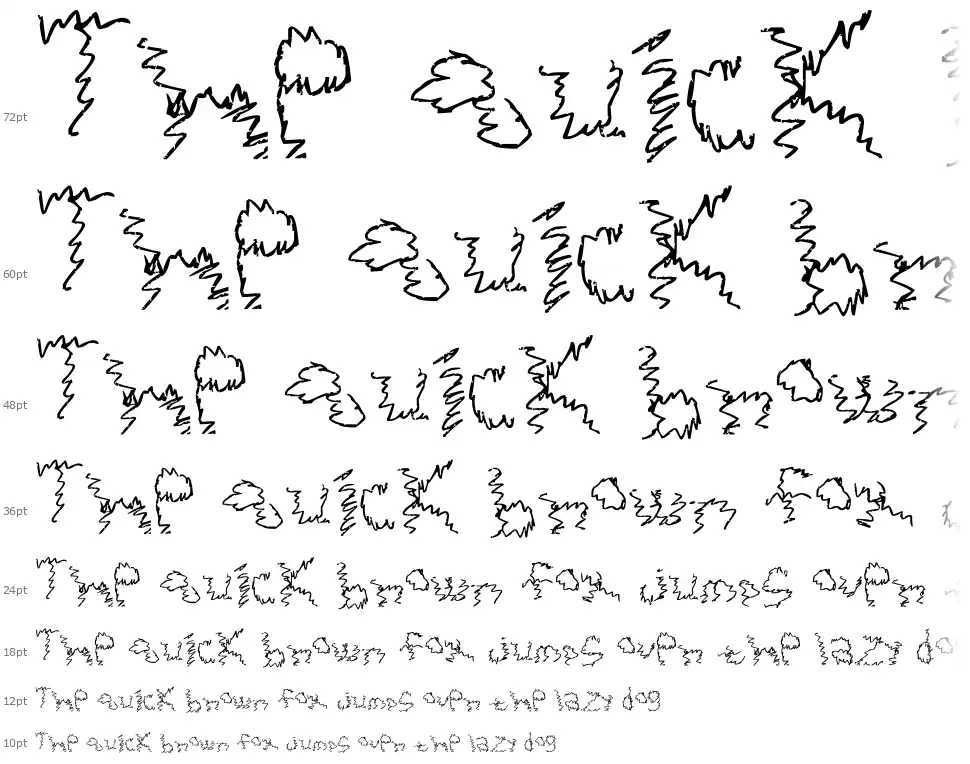 72pt The quick
60pt The quick br
48pt The quick brown
36pt The quick brown fox
24pt The quick brown fox jumps over
18pt The quick brown fox jumps over the lazy do
12pt The quick brown fox jumps over the lazy dog
10pt The quick brown fox jumps over the lazy dog